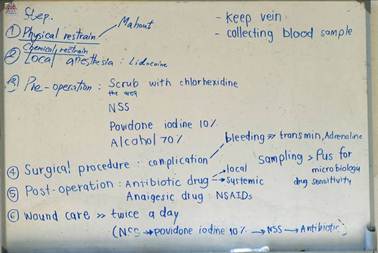 Step.
① Physical restrain Mahout
Chemical restrain
② Local anesthesia : Lidocaine
③ Pre-operation : Scrub with chlorhexidine
the area
NSS
Povidone iodine 10%
Alcohol 70%
- keep vein
- collecting blood sample
④ Surgical procedure : complication
bleeding » transmin, Adrenaline
Sampling > Pus for microbiology
drug sensitivity
⑤ Post-operation : Antibiotic drug local
systemic
Anaigesic drug : NSAIDs
⑥ Wound care » twice a day
(NSS → povidone iodine 10% → NSS → Antibiotic)